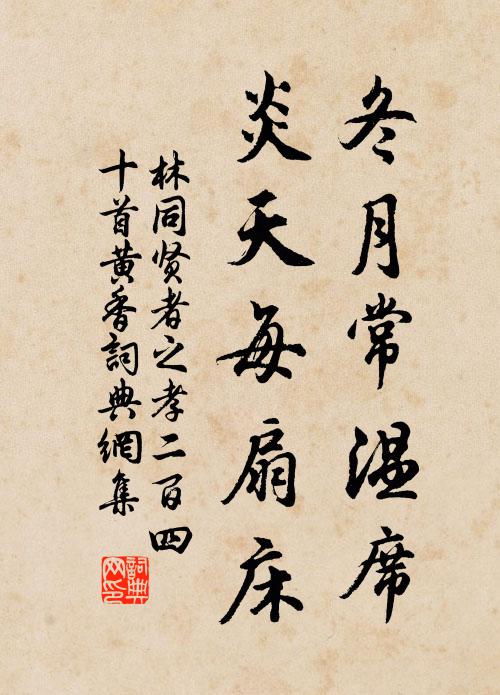 冬月常温席
炎天每扇床
林同贤者之孝二百四
十首黄香詞典網集
詞典网印